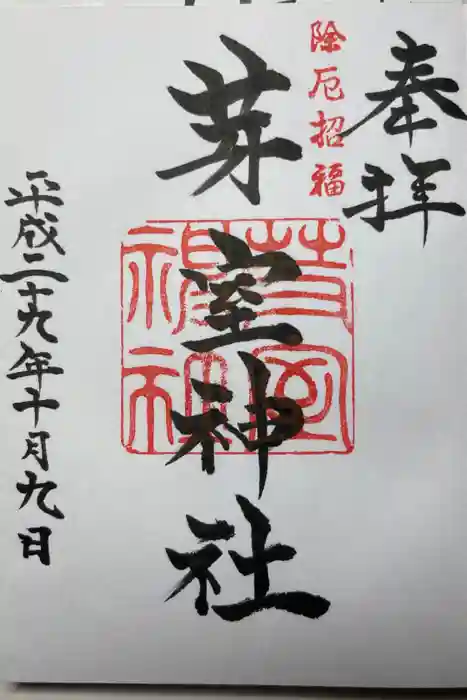 奉拝
除厄招福
芽室神社
芽室
神社
平成二十九年十月九日